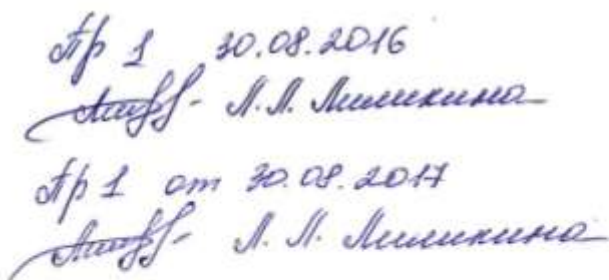 Пр 1 30.08.2016
Л.Л. Миликина
Пр 1 от 30.08.2017
Л. Л. Миликина